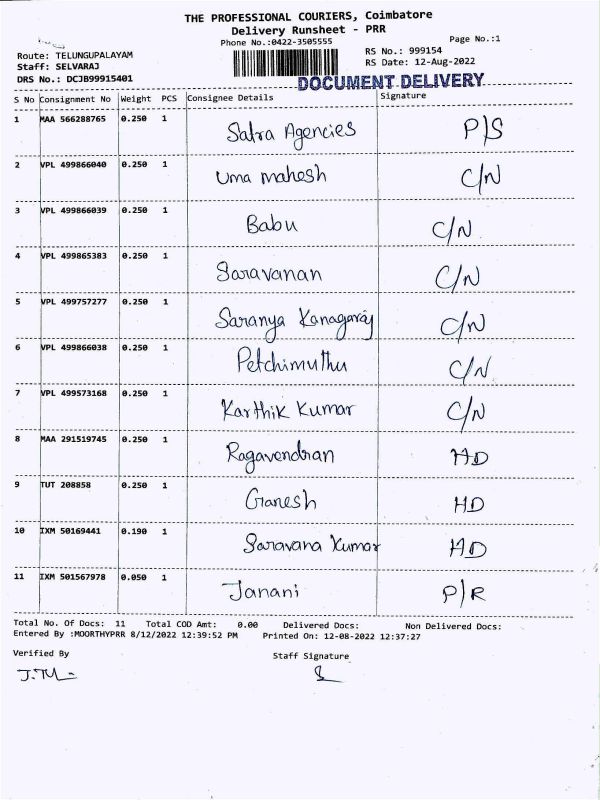 THE PROFESSIONAL COURIERS, Coimbatore
Delivery Runsheet - PRR
Phone No.:0422-3505555
Page No.:1
Route: TELUNGUPALAYAM
Staff: SELVARAJ
DRS No.: DCJB99915401
RS No.: 999154
RS Date: 12-Aug-2022
DOCUMENT DELIVERY
S No Consignment No Weight PCS Consignee Details Signature
1 MAA 566288765 0.250 1 Satra Agencies P/S
2 VPL 499866040 0.250 1 Uma mahesh C/N
3 VPL 499866039 0.250 1 Babu C/N
4 VPL 499865383 0.250 1 Saravanan C/N
5 VPL 499757277 0.250 1 Saranya Kanagaraj C/N
6 VPL 499866038 0.250 1 Petchimuthu C/N
7 VPL 499573168 0.250 1 Karthik Kumar C/N
8 MAA 291519745 0.250 1 Ragavendran HD
9 TUT 208858 0.250 1 Ganesh HD
10 IXM 50169441 0.190 1 Saravana Kumar HD
11 IXM 501567978 0.050 1 Janani P/R
Total No. Of Docs: 11 Total COD Amt: 0.00 Delivered Docs: Non Delivered Docs:
Entered By :MOORTHYPRR 8/12/2022 12:39:52 PM Printed On: 12-08-2022 12:37:27
Verified By Staff Signature